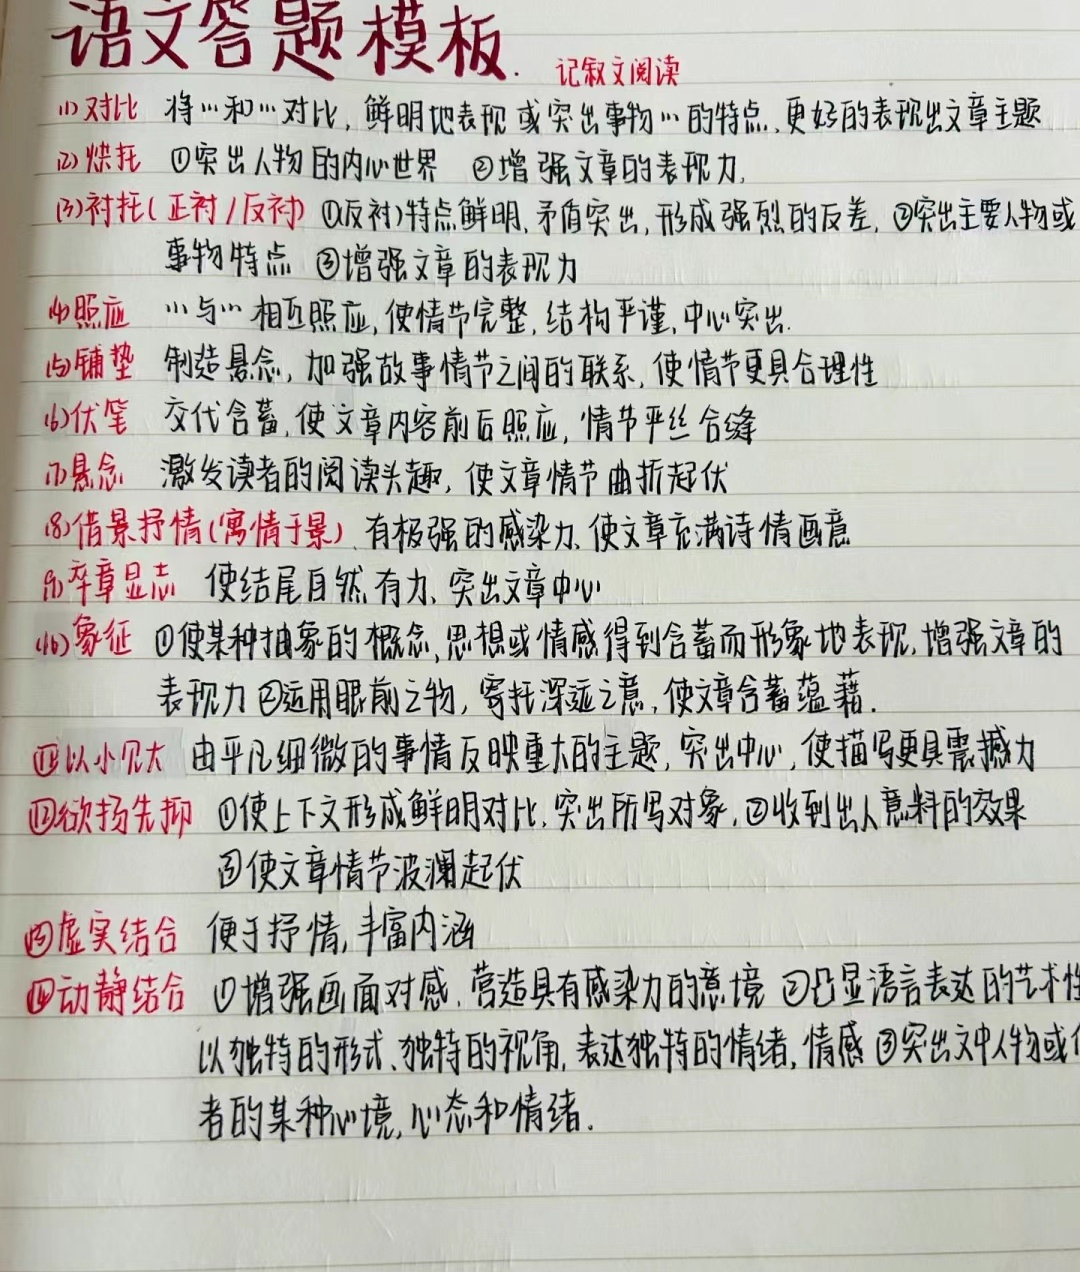 语文答题模板.
记叙文阅读
(1)对比 将…和…对比,鲜明地表现或突出事物…的特点,更好的表现出文章主题
(2)烘托 ①突出人物的内心世界 ②增强文章的表现力,
(3)衬托(正衬/反衬) ①反衬)特点鲜明,矛盾突出,形成强烈的反差,②突出主要人物或
事物特点 ③增强文章的表现力
(4)照应 …与…相互照应,使情节完整,结构严谨,中心突出.
(5)铺垫 制造悬念,加强故事情节之间的联系,使情节更具合理性
(6)伏笔 交代含蓄,使文章内容前后照应,情节严丝合缝
(7)悬念 激发读者的阅读兴趣,使文章情节曲折起伏
(8)借景抒情(寓情于景) 有极强的感染力、使文章充满诗情画意
(9)卒章显志 使结尾自然有力、突出文章中心
(10)象征 ①使某种抽象的概念、思想或情感得到含蓄而形象地表现,增强文章的
表现力 ②运用眼前之物,寄托深远之意,使文章含蓄蕴藉.
⑪以小见大 由平凡细微的事情反映重大的主题,突出中心,使描写更具震撼力
⑫欲扬先抑 ①使上下文形成鲜明对比,突出所写对象,②收到出人意料的效果
③使文章情节波澜起伏
⑬虚实结合 便于抒情,丰富内涵
⑭动静结合 ①增强画面对感,营造具有感染力的意境 ②凸显语言表达的艺术性
以独特的形式、独特的视角,表达独特的情绪,情感 ③突出文中人物或
者的某种心境,心态和情绪.